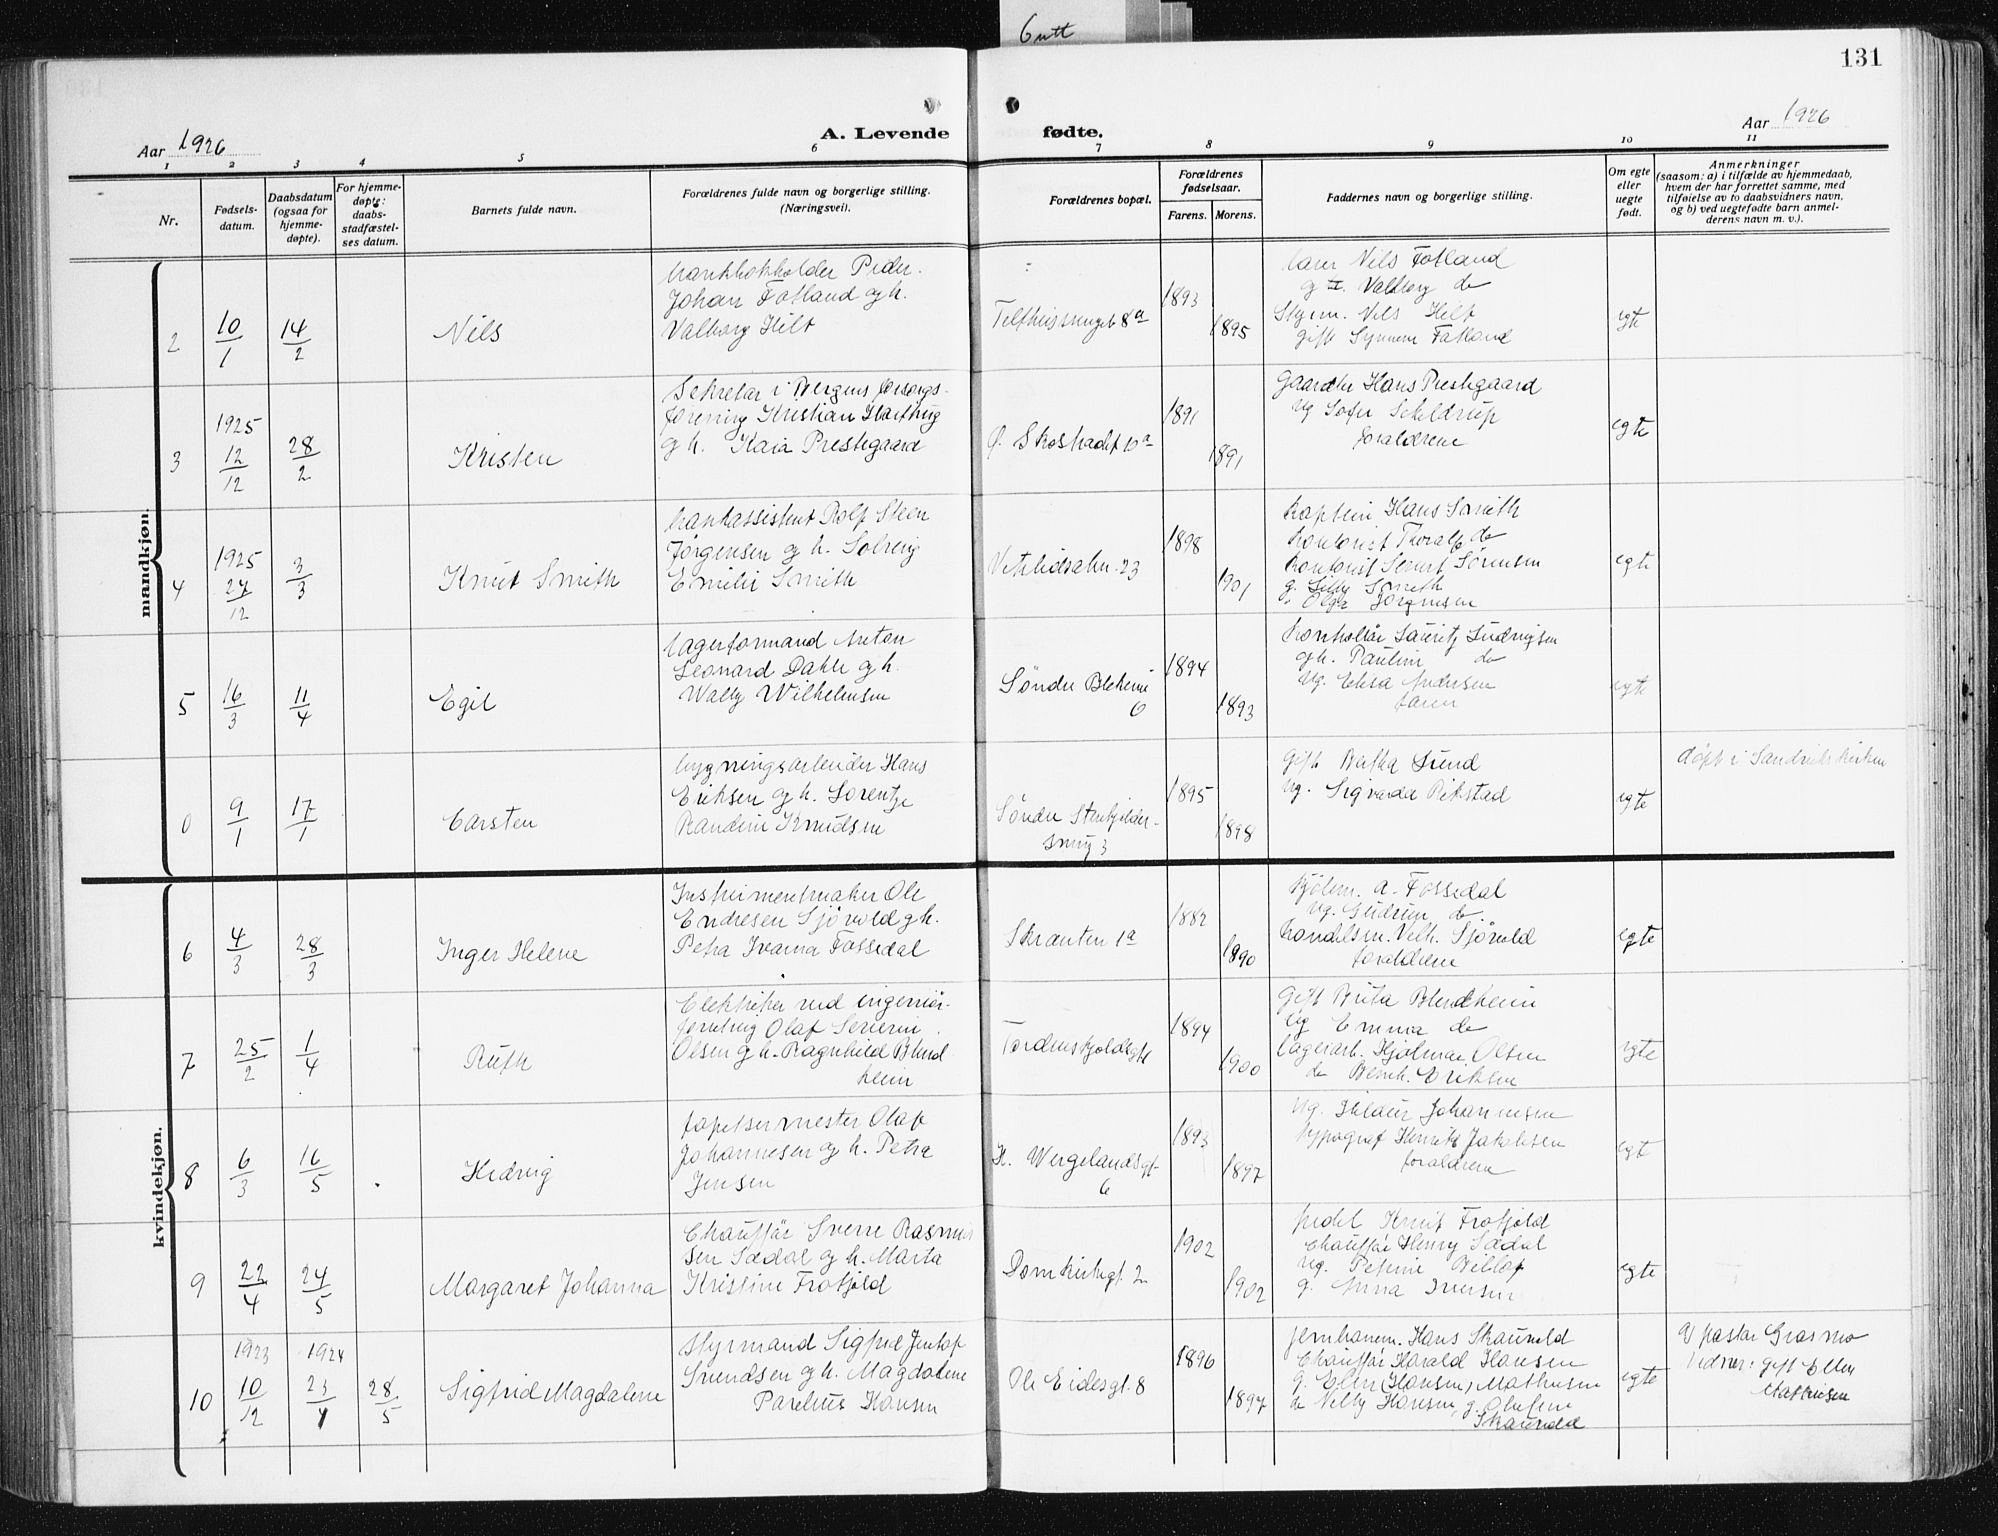 Gutt
131
Aar 1926
A. Levende fødte.
Aar 1926
1 2 3 4 5 6 7 8 9 10 11
Nr.
Fødsels-
datum.
Daabsdatum
(ogsaa for
hjemme-
døpte).
For hjemme-
døpte:
daabs-
stadfæstel-
ses datum.
Barnets fulde navn.
Forældrenes fulde navn og borgerlige stilling.
(Næringsvei).
Forældrenes bopæl.
Forældrenes
fødselsaar.
Farens. Morens.
Faddernes navn og borgerlige stilling.
Om egte
eller
uegte
født.
Anmerkninger
(saasom: a) i tilfælde av hjemmedaab,
hvem der har forrettet samme, med
tilføielse av to daabsvidners navn,
og b) ved uegtefødte barn anmel-
derens navn m. v.).
mandkjøn.
2
10/1
14/2
Nils
bankbokholder Peder
Johan Fotland og h.
Valborg Hilt
8a
1893
1895
Nils Fotland
Valborg do
Nils Hilt
gift Synneve Fatland
egte
3
1925
12/12
28/2
Kristen
Sekretær i Bergens forsorgs-
forening Kristian
og h. Kaia Prestegaard
Ø. Skostrædet 10a
1891
1891
Hans Prestegaard
ug Schldrup
forældrene
egte
4
1925
27/12
3/3
Knut Smith
bankassistent Rolf Steen
Jørgensen og h. Solveig
Emilie Smith
23
1898
1901
kaptein Hans Smith
kontorist Thoralf do
kontorist Sørensen
g. Smith
" Olga Jørgensen
egte
5
16/3
11/4
Egil
lagerformand Anton
Leonard Dahle og h.
Wally Wilhelmsen
Søndre Blekevei
6
1894
1893
kontrollør Lauritz Ludvigsen
og h. Pauline do
ug. Andersen
faren
egte
0
9/1
17/1
Carsten
bygningsarbeider Hans
Eriksen og h. Lorentze
Randine Knudsen
Søndre
smug 3
1895
1898
gift Lund
ug. Sigvarda
egte
døpt i Sandvikskirken
kvindekjøn.
6
4/3
28/3
Inger Helene
Instrumentmaker Ole
Endresen Sjövold og h.
Petra Ivarna Fossedal
Skranten 1a
1882
1890
A. Fossedal
ug. Gudrun do
handelsm. Vilh. Sjövold
forældrene
egte
7
25/2
1/4
Ruth
Elektriker ved ingeniör-
forretng Olaf Severin
Olsen og h. Ragnhild Blind
heim
Tordenskjoldsgt
1894
1900
gift Brita Blindheim
ug Emma do
lagerarb. Hjalmar Olsen
do Bernh. Eriksen
egte
8
6/3
16/5
Hedvig
tapetsermester Olaf
Johannesen og h. Petra
Jensen
H. Wergelandsgt.
6
1893
1897
ug. Hildur Johannesen
typograf Henrik Jakobsen
forældrene
egte
9
22/4
24/5
Margaret Johanna
Chauffør Sverre Rasmus
sen Sædal og h. Marta
Kristine Frotjold
Domkirkegt. 2
1902
1902
pedel Knut Frotjold
Chauffør Henry Sædal
ug. Petrine
g. Anna Iversen
egte
10
1923
10/12
1924
23/4
28/5
Sigfrid Magdalene
Styrmand Sigfrid Jentof
Svendsen og h. Magdalene
Parelius Hansen
Ole Eidesgt. 8
1896
1897
jernbanem. Hans Skaureld
Chauffør Harald Hansen
g. Ellen (Hansen) Mathisen
do Nelly Hansen, g. Olufine
Skaureld
egte
a) pastor Grasmo
Vidner: gift Ellen
Mathisen